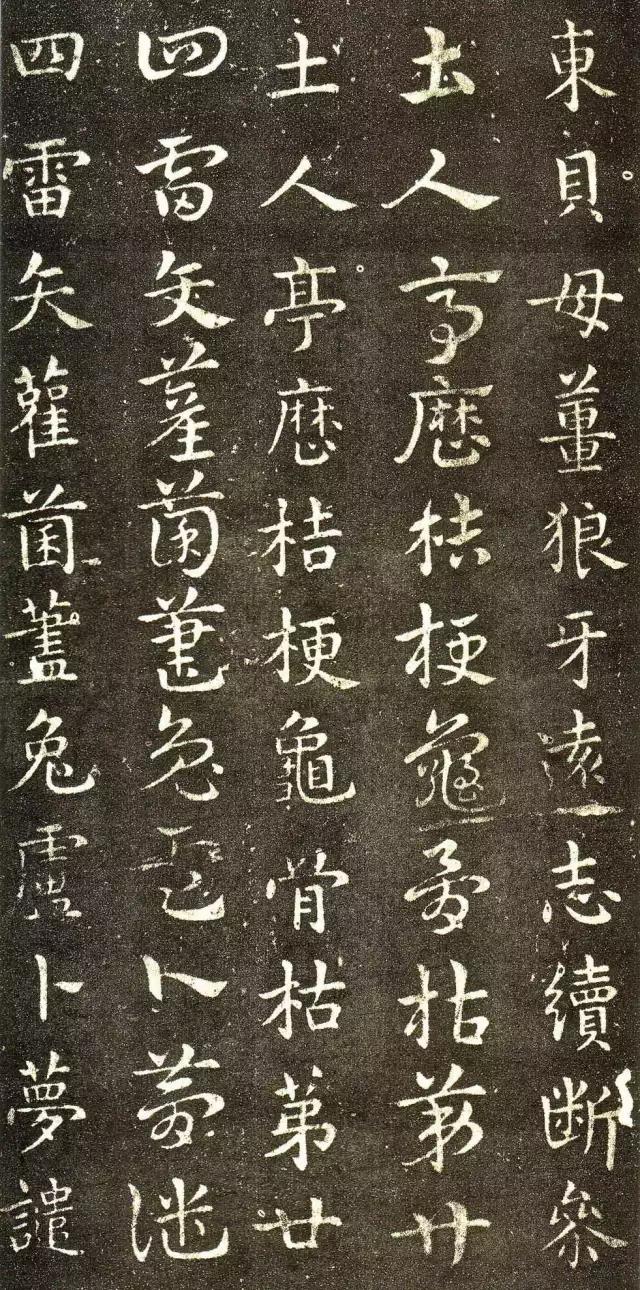 東貝母薑狼牙遠志續断參
土人亭歷桔梗龜骨枯第廿
土人亭歷桔梗龜骨枯第廿
四雷矢雚菌藎兔盧卜夢譴
四雷矢雚菌藎兔盧卜夢譴